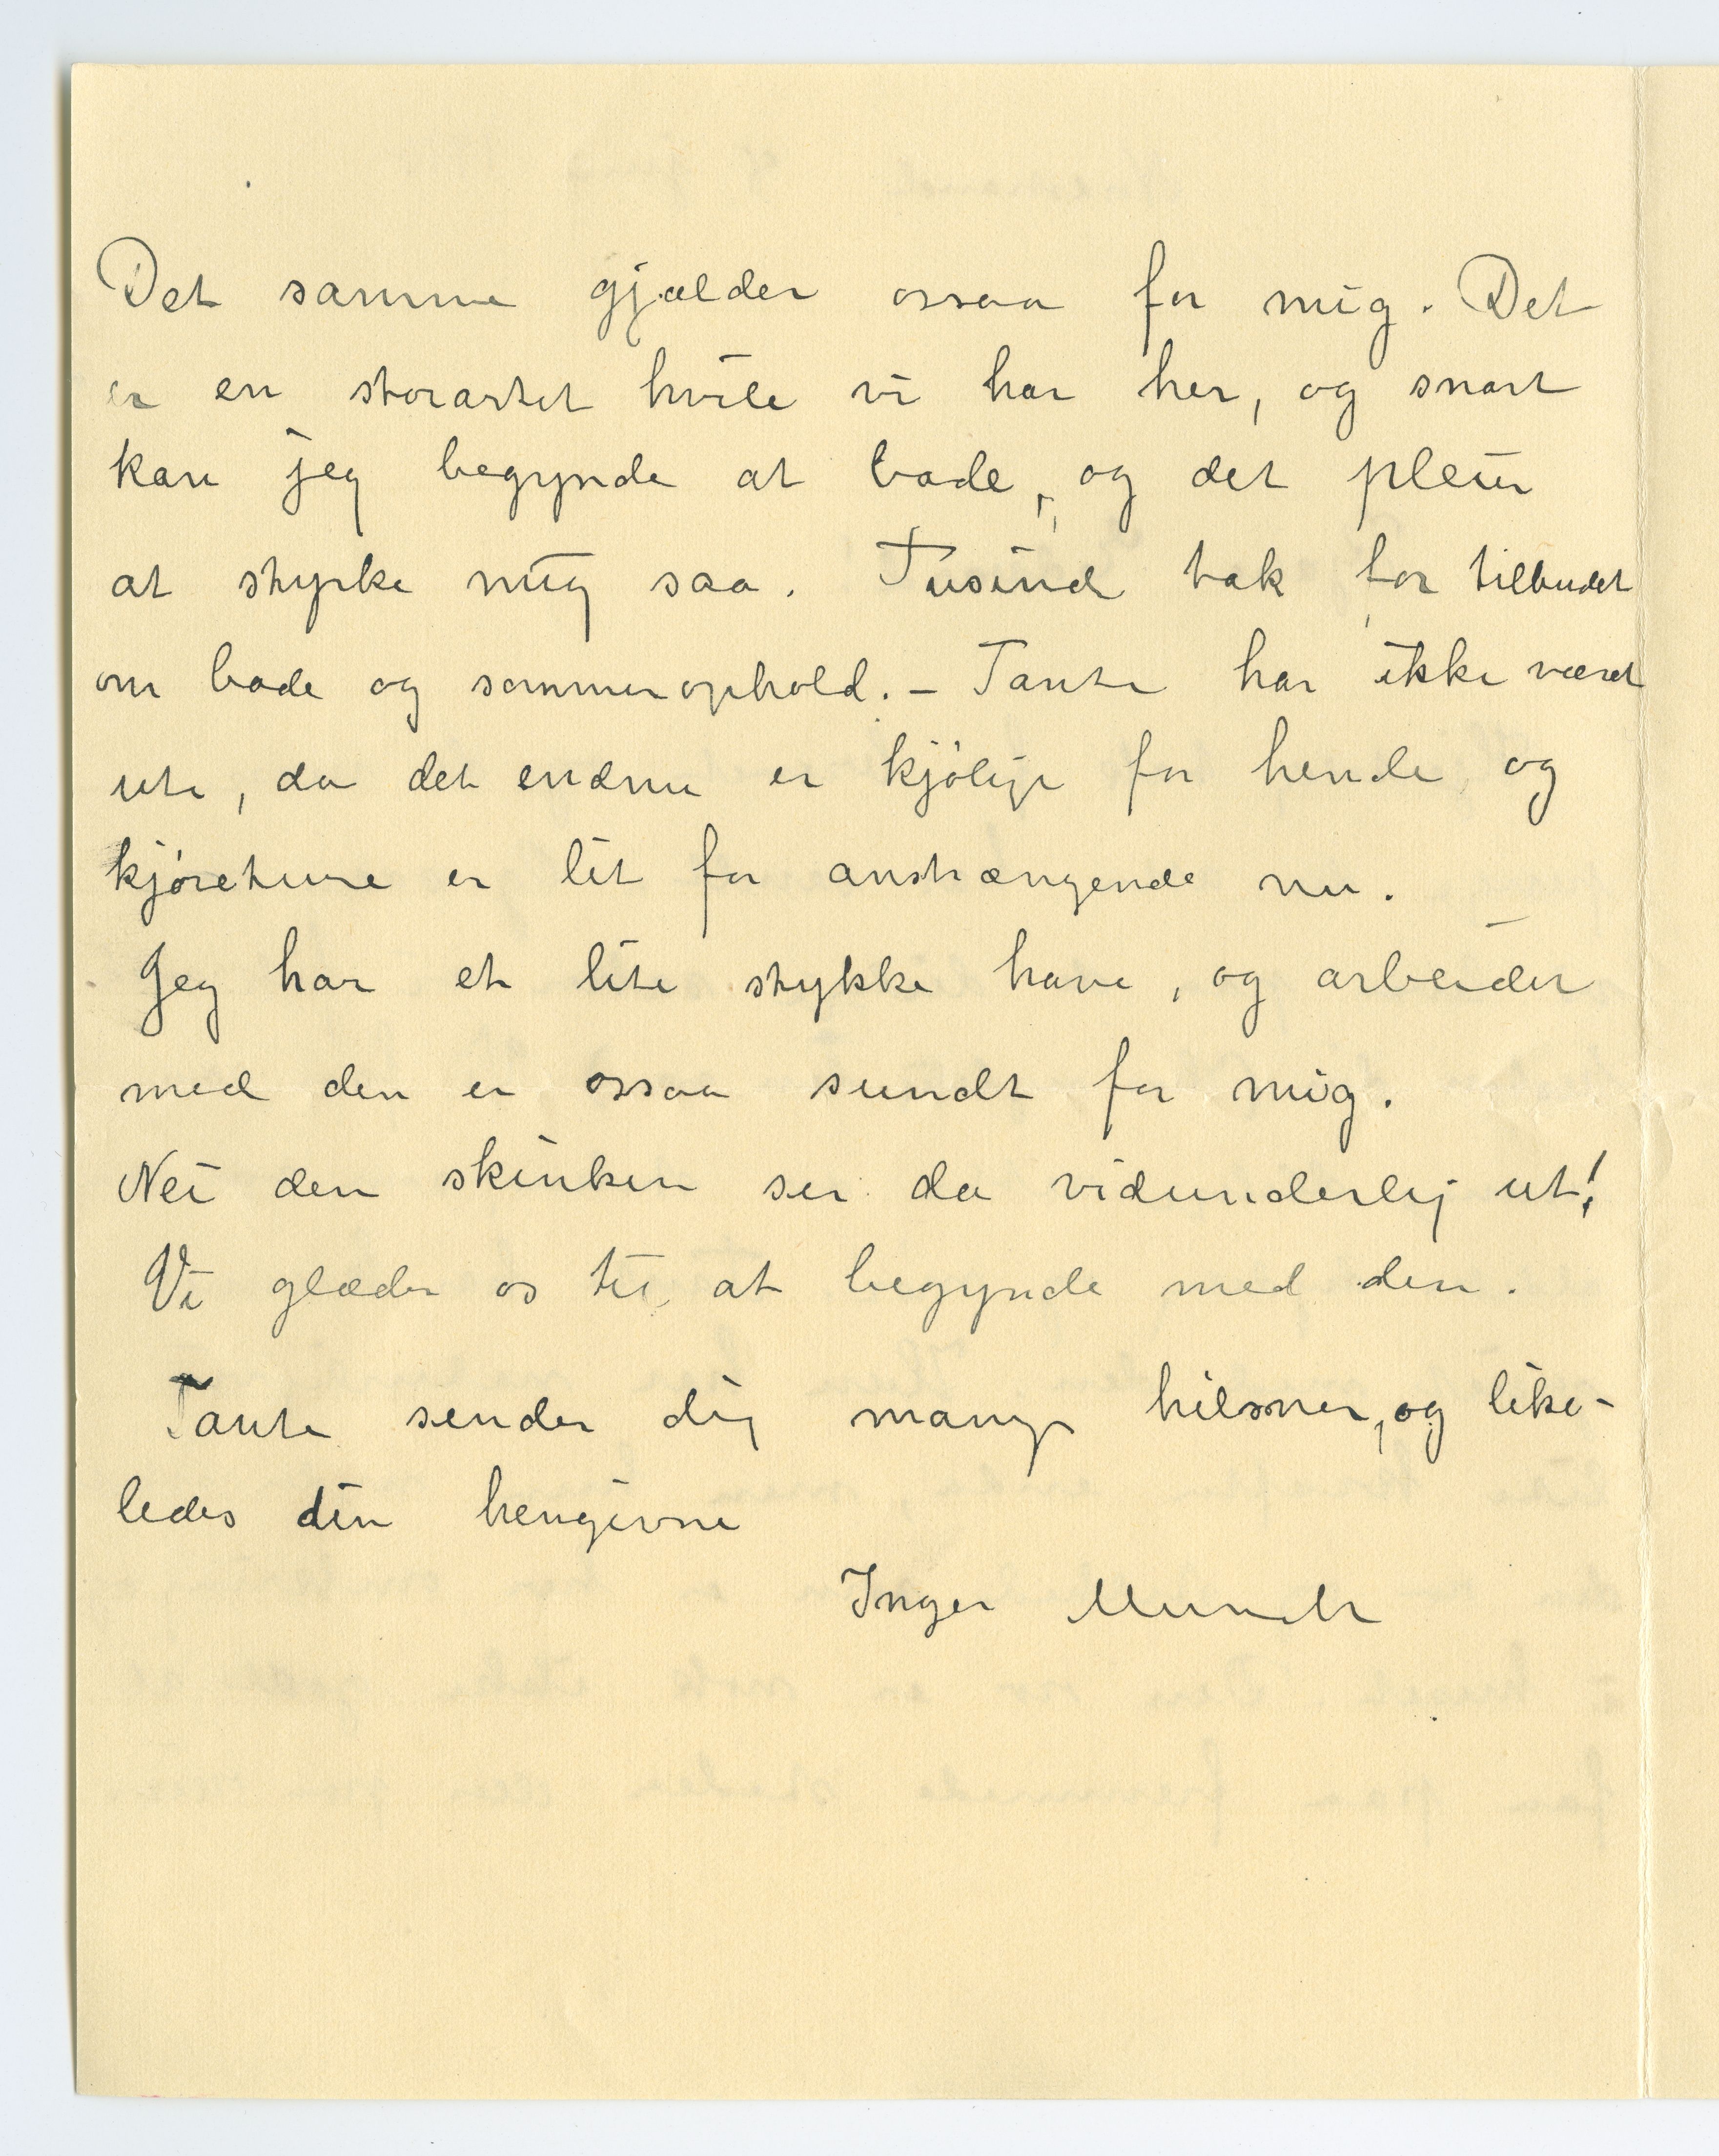 Det samme gjælder ossaa for mig. Det
er en storartet hvile vi har her, og snart
kan jeg begynde at bade, og det pleier
at styrke mig saa. Tusind tak for tilbudet
om bade og sommerophold. – Tante har ikke været
ute, da det endnu er kjølige for hende og
kjøreture er lit for anstrængende nu.
Jeg har et lite stykke have, og arbeider
med den er ossaa sundt for mig.
Nei den skinken ser da vidunderlig ut!
Vi glæder os til at begynde med den.
Tante sender dig mange hilsner, og like-
ledes din hengivne
Inger Munch